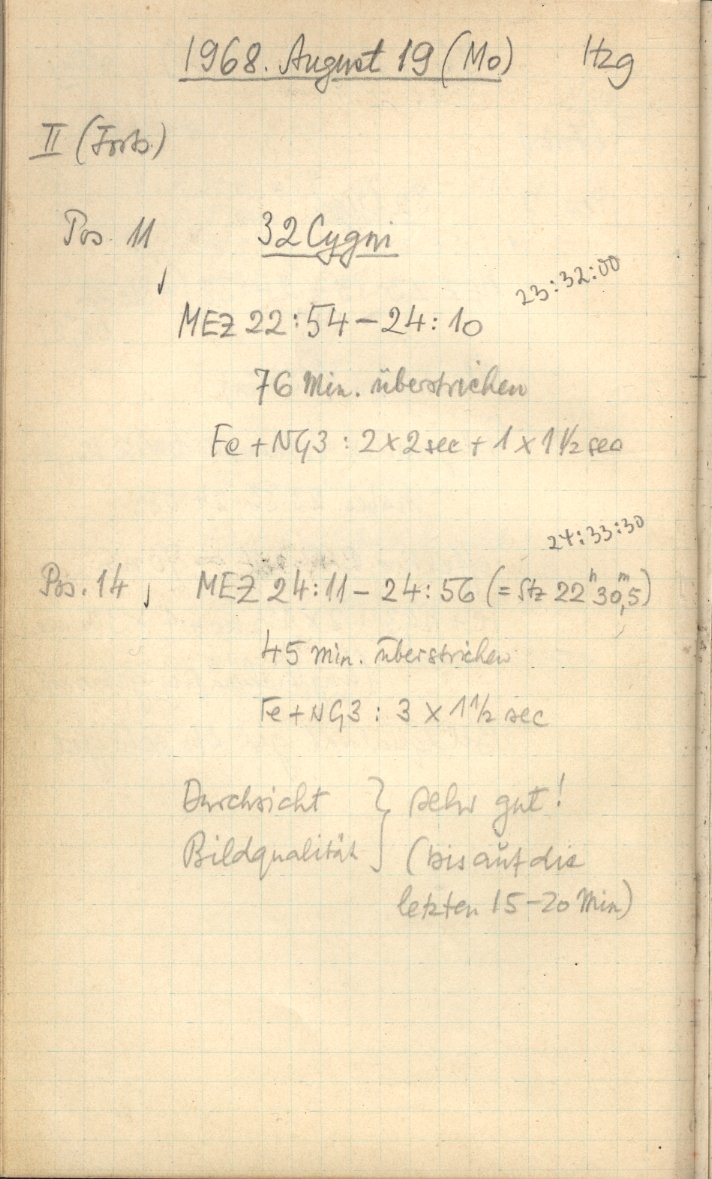 1968. August 19 (Mo) Hzg
II (Forts.)
Pos. 11 32 Cygni
23:32:00
MEZ 22:54 – 24:10
76 Min. überstrichen
Fe + NG3 : 2 x 2 sec + 1 x 1 1/2 sec
24:33:30
Pos. 14 MEZ 24:11 – 24:56 (= Stz 22h 30,m5)
45 Min. überstrichen
Fe + NG3 : 3 x 1 1/2 sec
Durchsicht } sehr gut!
Bildqualität } (bis auf die
letzten 15–20 Min)